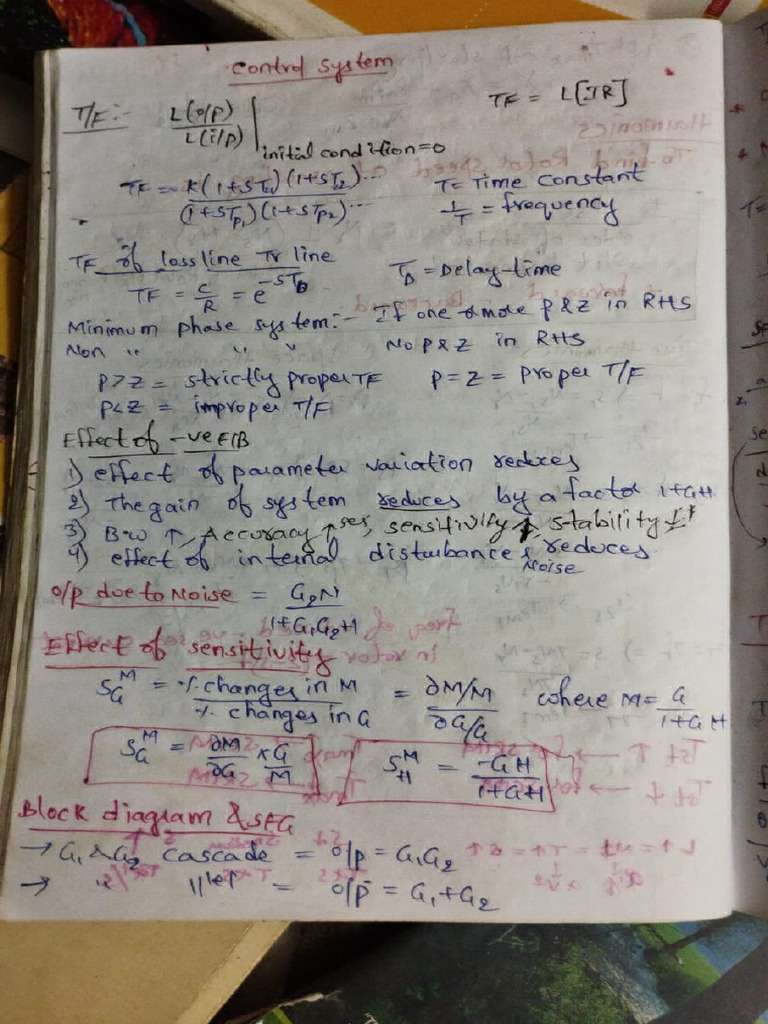 control system
T/F:- L(o/p)/L(i/p) | initial condition=0 TF = L[IR]
TF = K(1+ST1)(1+ST2).../(1+STp1)(1+STp2)... T= Time constant
1/T = frequency
TF of lossline Tr line TD = Delay-time
TF = C/R = e^-STD
Minimum phase system:- If one or more P & Z in RHS
Non " " " No P & Z in RHS
P>Z = strictly proper TF P=Z = proper T/F
P<Z = improper T/F
Effect of -ve F/B
1) effect of parameter variation reduces
2) The gain of system reduces by a factor 1+GH
3) B.W ↑, Accuracy ↑ses, sensitivity, stability
4) effect of internal disturbance & Noise reduces
o/p due to Noise = G2N/1+G1G2H
Effect of sensitivity
S_G^M = % changes in M/% changes in G = ∂M/M/∂G/G where M = G/1+GH
S_G^M = ∂M/∂G × G/M S_H^M = -GH/1+GH
Block diagram & SFG
→ G1 & G2 cascade = o/p = G1G2
→ " llel = o/p = G1+G2